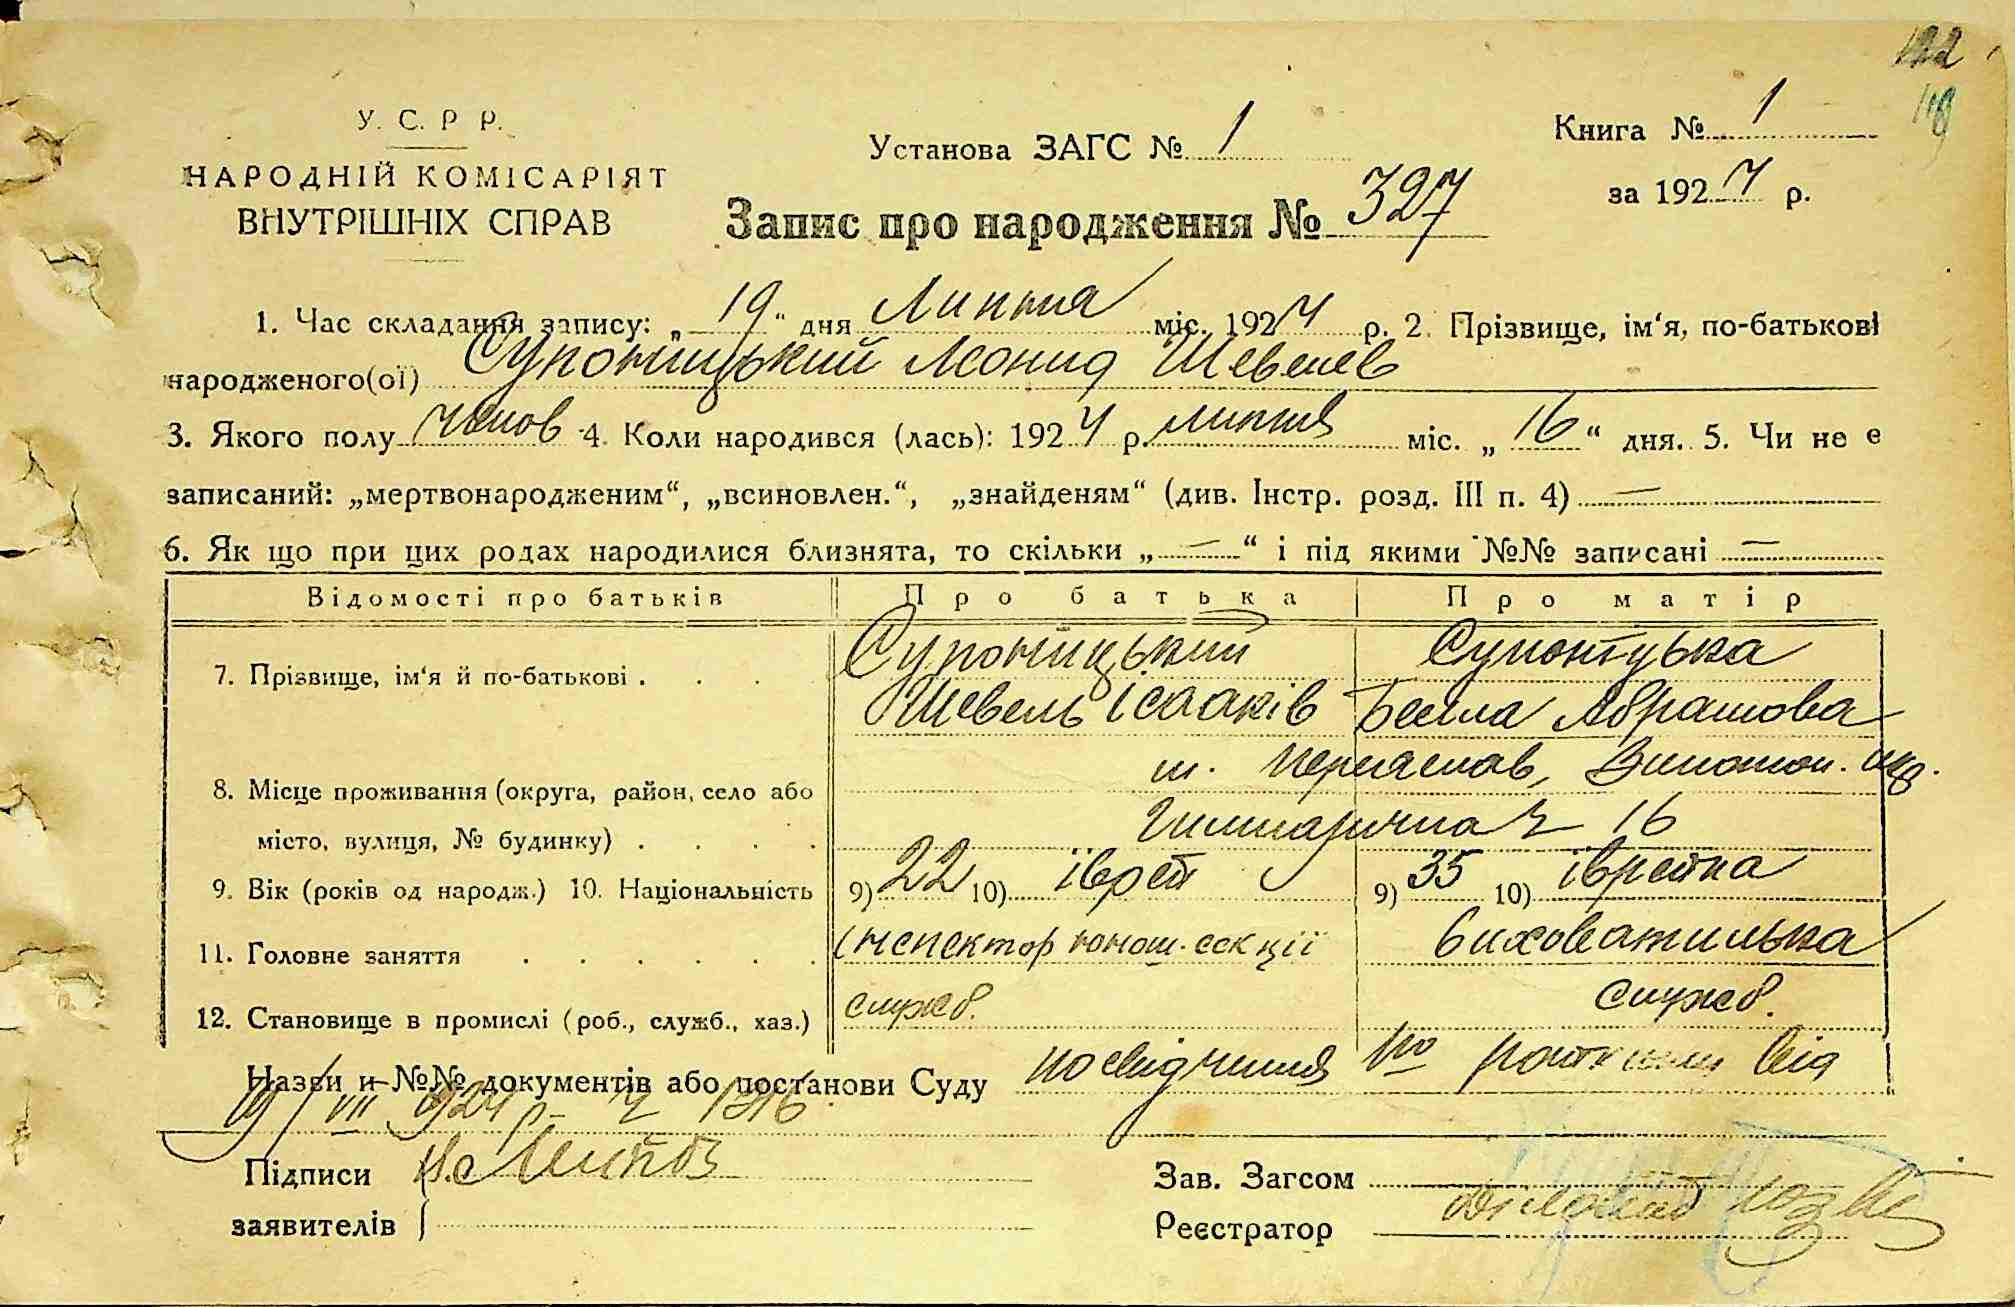 122
У. С. Р. Р.
НАРОДНІЙ КОМІСАРІЯТ
ВНУТРІШНІХ СПРАВ
Установа ЗАГС № 1
Книга № 1
за 1924 р.
Запис про народження № 327
1. Час складання запису: „19“ дня Липня міс. 1924 р. 2. Прізвище, ім‘я, по-батькові
народженого(ої) Супоницький Леонид Шевелев
3. Якого полу чолов 4. Коли народився (лась): 1924 р. липня міс. „16“ дня. 5. Чи не є
записаний: „мертвонародженим“, „всиновлен.“, „знайденям“ (див. Інстр. розд. III п. 4) —
6. Як що при цих родах народилися близнята, то скільки „—“ і під якими №№ записані —
Відомості про батьків Про батька Про матір
7. Прізвище, ім‘я й по-батькові . . . . Супоницький Шевель Ісааків Супоніцька Бейла Абрамова
8. Місце проживання (округа, район, село або
місто, вулиця, № будинку) . . . .
м. Переяслав,
16
9. Вік (років од народж.) 10. Національність 9) 22 10) іврей 9) 35 10) іврейка
11. Головне заняття . . . . . . Інспектор юнош. секції вихователька
12. Становище в промислі (роб., служб., хаз.) служб. служб.
Назви и №№ документів або постанови Суду посвідчення по від
19/VII 1924 р. ч 1316.
Підписи
заявителів
Зав. Загсом
Реєстратор